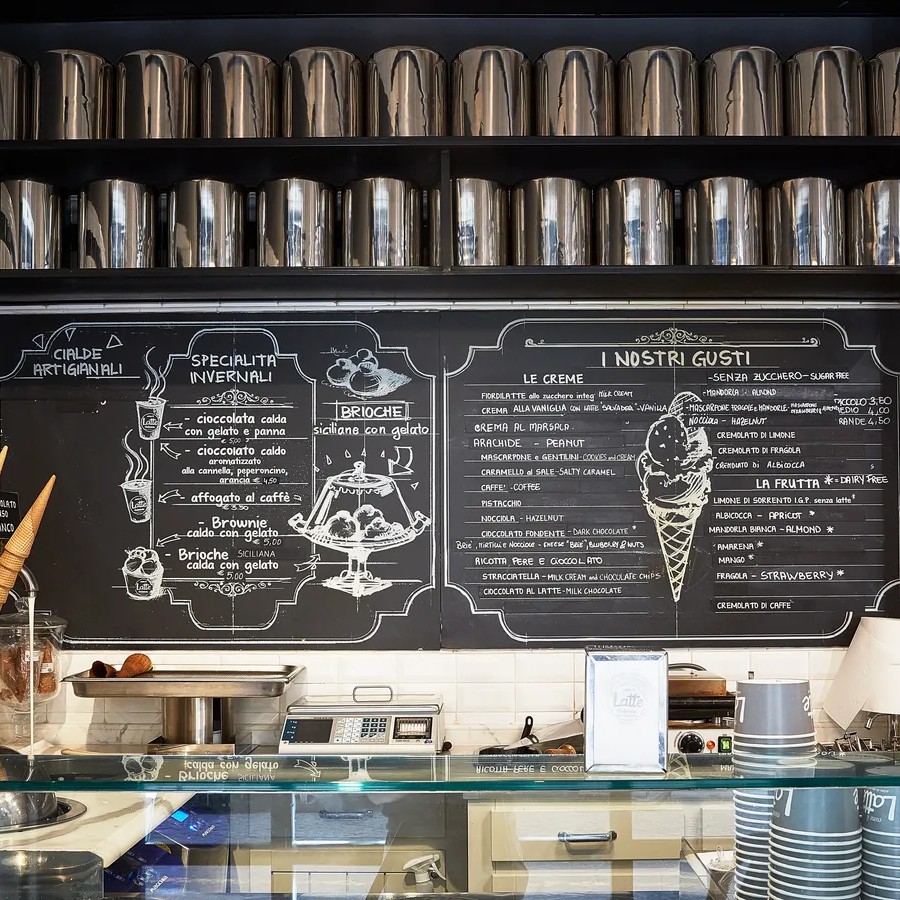 CIALDE
ARTIGIANALI
SPECIALITA
INVERNALI
- cioccolata calda
con gelato e panna
€ 5,00
- cioccolato caldo
aromatizzato
alla cannella, peperoncino,
arancia € 4,50
- affogato al caffè -
€ 3.50
- Brownie
caldo con gelato
€ 5,00
- Brioche SICILIANA
calda con gelato
5,00
BRIOCHE
siciliane con gelato
I NOSTRI GUSTI
LE CREME
FIORDILATTE allo zucchero integ. MILK CREAM
CREMA ALLA VANIGLIA CON LATTE -VANILLA
CREMA AL MARSALA
ARACHIDE - PEANUT
MASCARPONE e GENTILINI - COOKIES and CREAM
CARAMELLO al SALE - SALTY CARAMEL
CAFFE' - COFFEE
PISTACCHIO
NOCCIOLA - HAZELNUT
CIOCCOLATO FONDENTE - DARK CHOCOLATE *
BRIE', MIRTILLI e NOCCIOLE - CHEESE "BRIE", BLUEBERRY & NUTS
RICOTTA PERE E CIOCCOLATO
STRACCIATELLA - MILK CREAM and CHOCOLATE CHIPS
CIOCCOLATO AL LATTE - MILK CHOCOLATE
-SENZA ZUCCHERO - SUGAR FREE
-MANDORLA : ALMOND
-MASCARPONE FRAGOLE e MANDORLE.
NOCCIOLA - HAZELNUT
CREMOLATO DI LIMONE
CREMOLATO DI FRAGOLA
CREMOLATO DI ALBICOCCA
PICCOLO 3,50
MEDIO 4,00
GRANDE 4,50
LA FRUTTA * = DAIRY FREE
LIMONE DI SORRENTO I.G.P. senza latte *
ALBICOCCA - APRICOT *
MANDORLA BIANCA - ALMOND *
AMARENA *
MANGO *
FRAGOLA - STRAWBERRY *
CREMOLATO DI CAFFE'
Latte
Latte